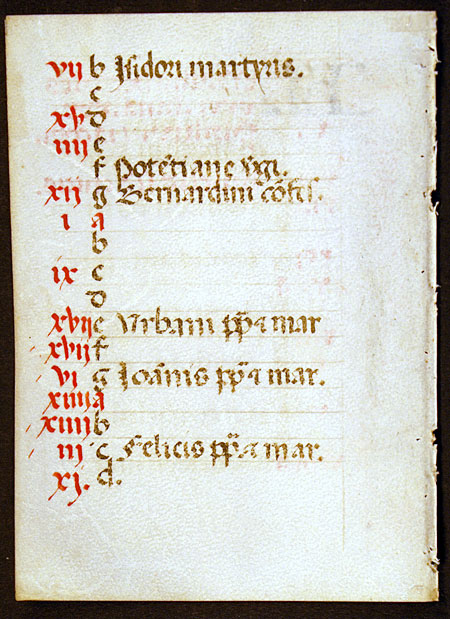 vii b Isidori martyris.
c
xv d
iiij e
f Potētiane vgī.
xij g Bernardini cōfes.
i a
b
ix c
d
xvij e Urbani pp̄ & mar
xvij f
vi g Joānis pp̄ & mar.
xiiij a
xiiij b
iij c Felicis pp̄ & mar.
xj. d.